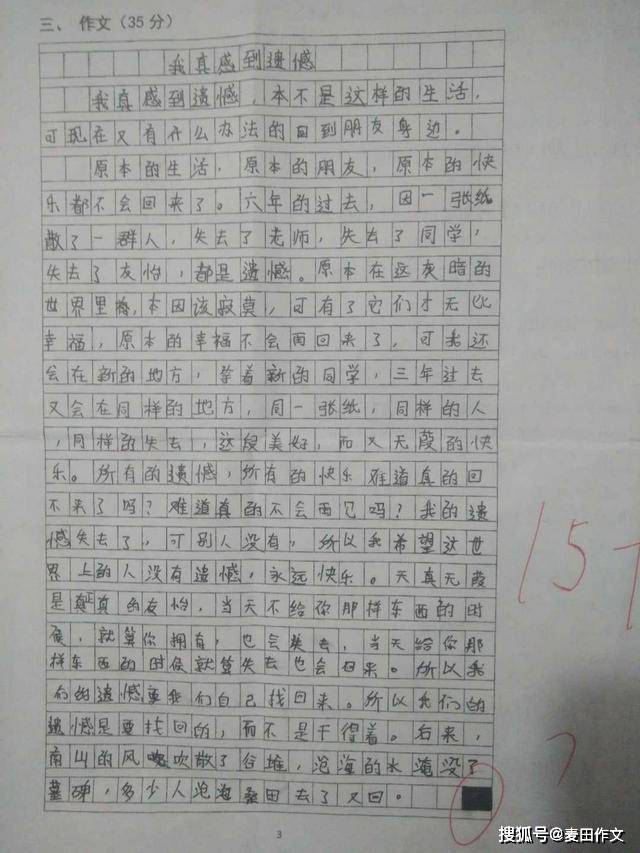 三、 作文(35分)
我真感到遗憾
我真感到遗憾，本不是这样的生活，
可现在又有什么办法的回到朋友身边。
原本的生活，原本的朋友，原本的快
乐都不会回来了。六年的过去，因一张纸
散了一群人，失去了老师，失去了同学，
失去了友怡，都是遗憾。原本在这灰暗的
世界里，本因该寂寞，可有了它们才无比
幸福，原本的幸福不会再回来了，可我还
会在新的地方，等着新的同学，三年过去
又会在同样的地方，同一张纸，同样的人
，同样的失去，这段美好，而又无葭的快
乐。所有的遗憾，所有的快乐难道真的回
不来了吗？难道真的不会再见吗？我的遗
憾失去了，可别人没有，所以我希望这世
界上的人没有遗憾，永远快乐。天真无葭
是真真的友怡，当天不给你那样东西的时
候，就算你拥有，也会失去，当天给你那
样东西的时候就算失去也会回来。所以我
们的遗憾要我们自己找回来。所以我们的
遗憾是要找回的，而不是干得着。右来，
南山的风吹散了谷堆，沧海的水淹没了
墓碑，多少人沧海桑田去了又回。
15
3
搜狐号@麦田作文